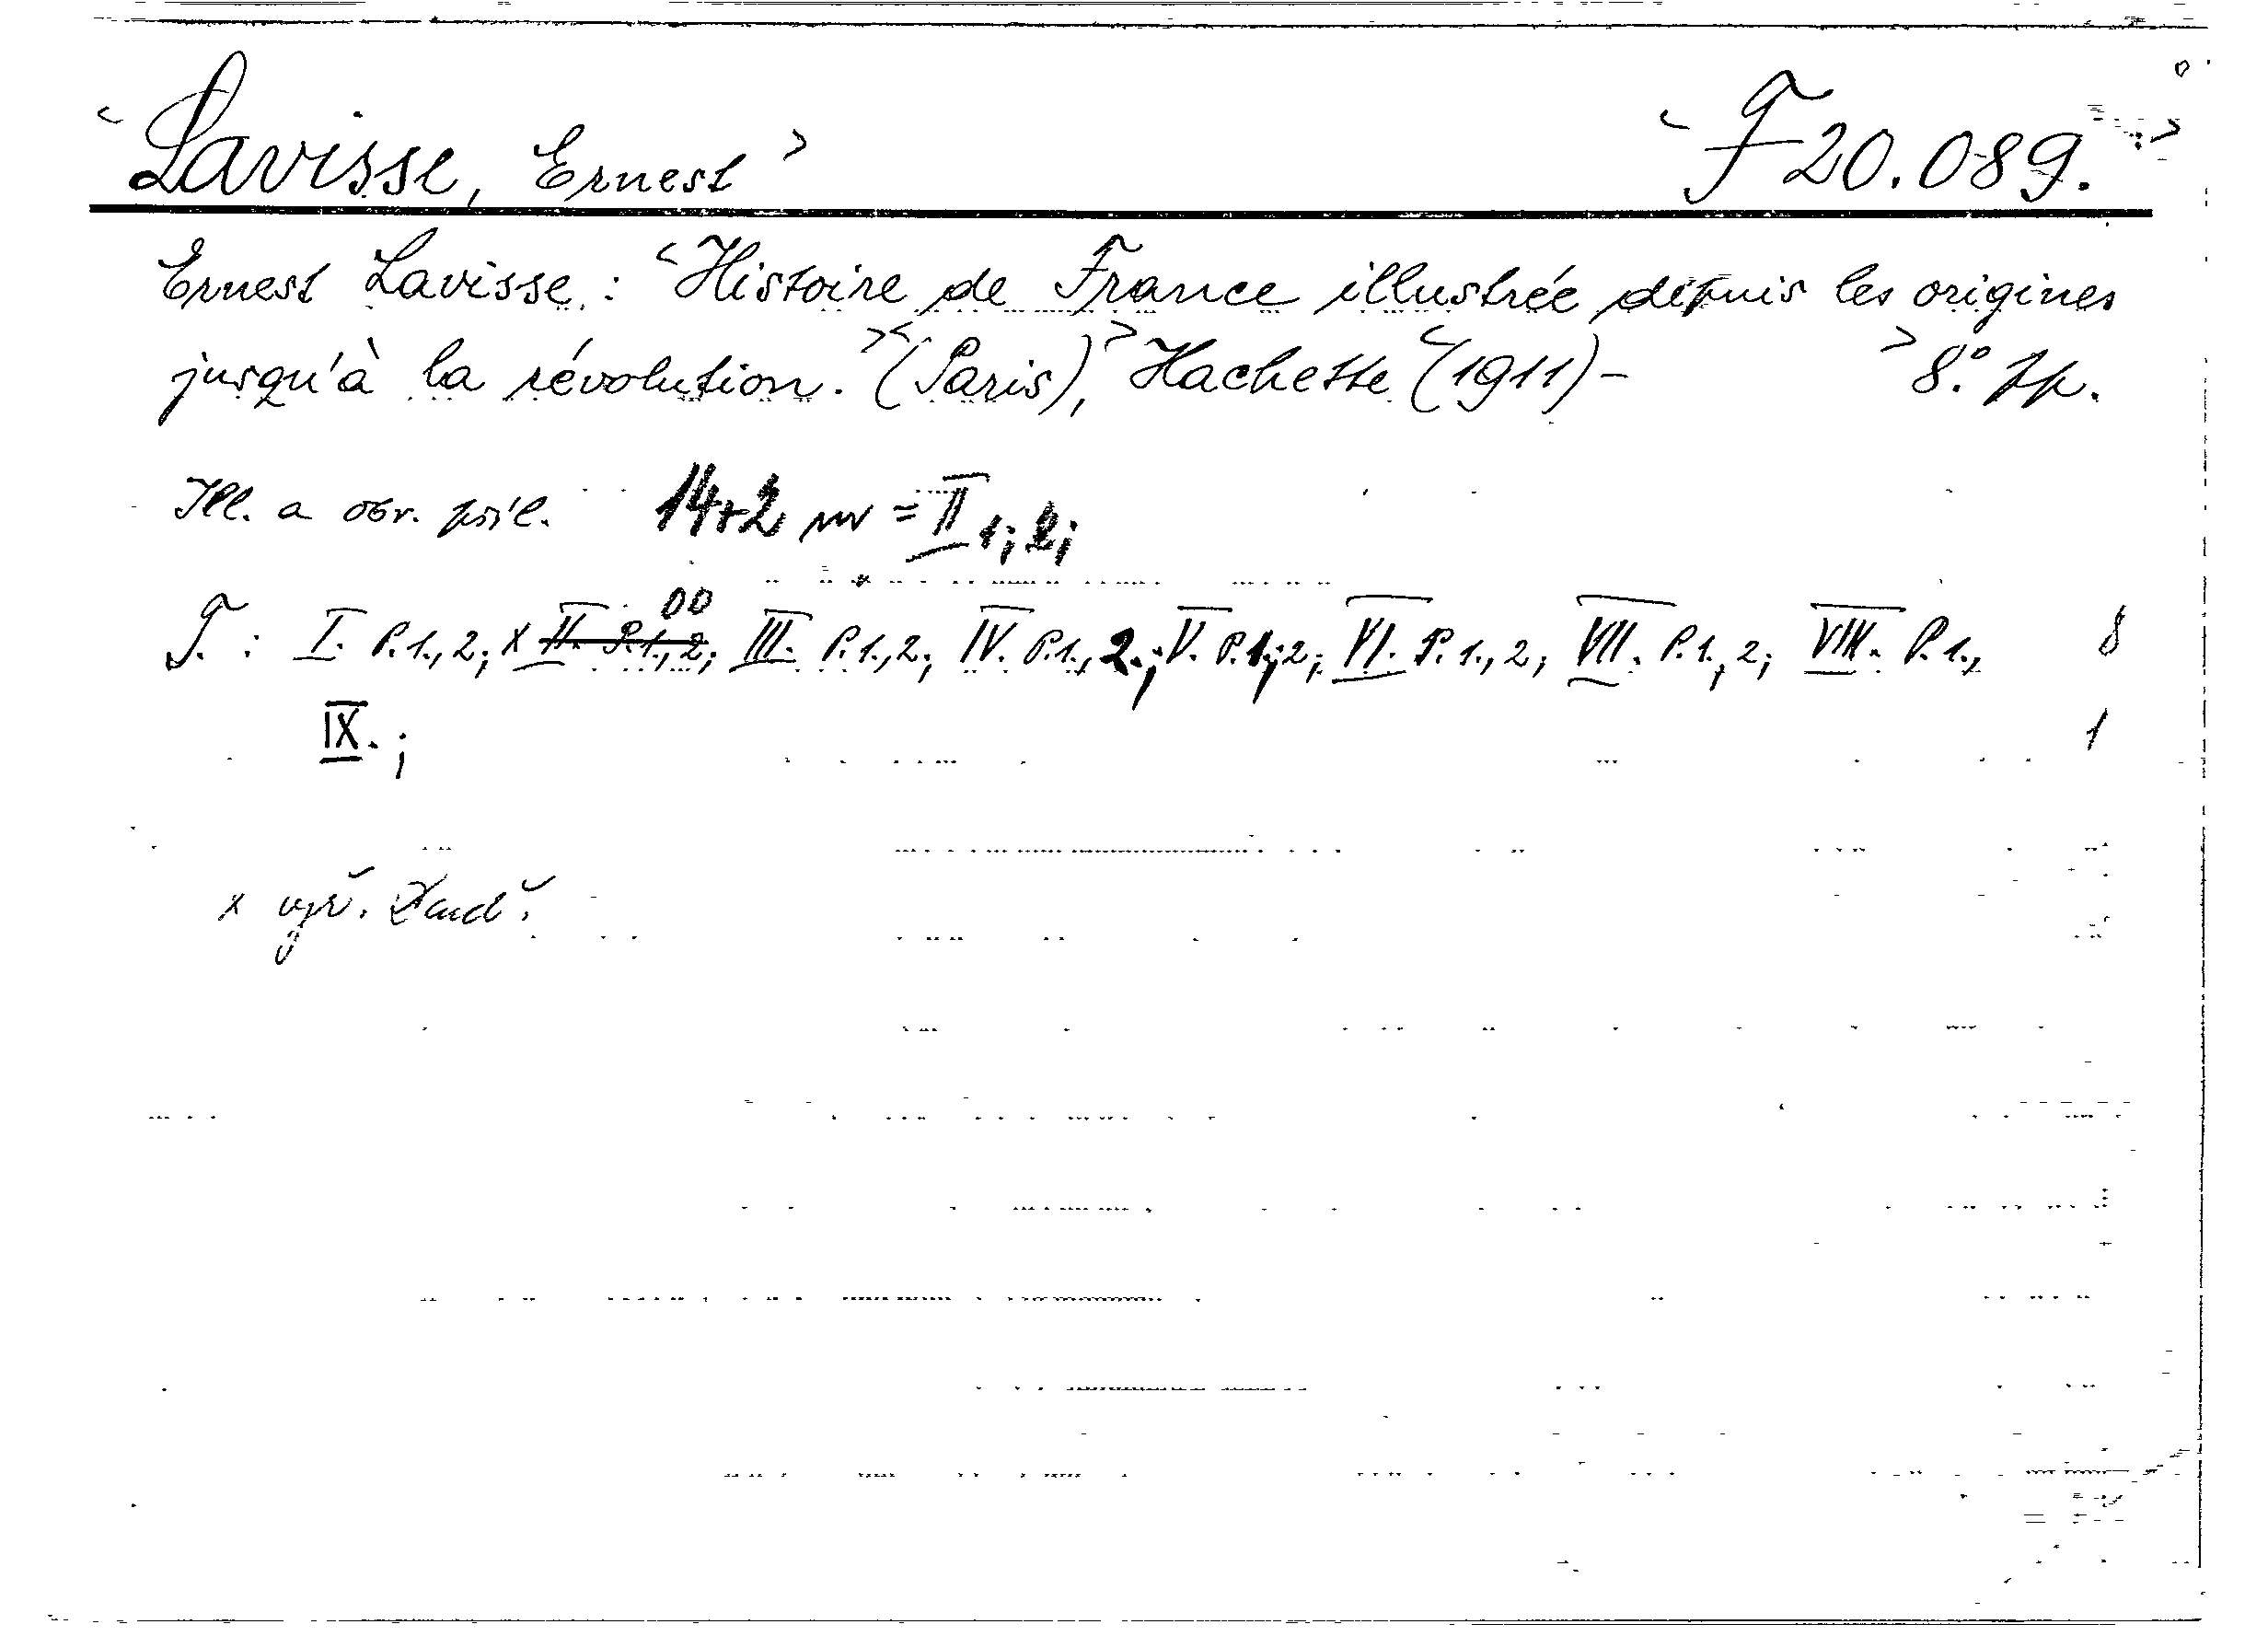 <Lavisse, Ernest> <F 20.089.>
Ernest Lavisse: <Histoire de France illustrée depuis les origines
jusqu'à la révolution.><(Paris),> Hachette <(1911)- > 8°. fp.
Ill. a obr. příl. 14+2 nv = II 1; 2;
T.: I. P.1., 2; x II. P.1., 2; III. P.1., 2; IV. P.1., 2.; V. P.1; 2; VI. P.1., 2; VII. P.1., 2; VIII. P.1., 8
IX.; 1
x vyř.